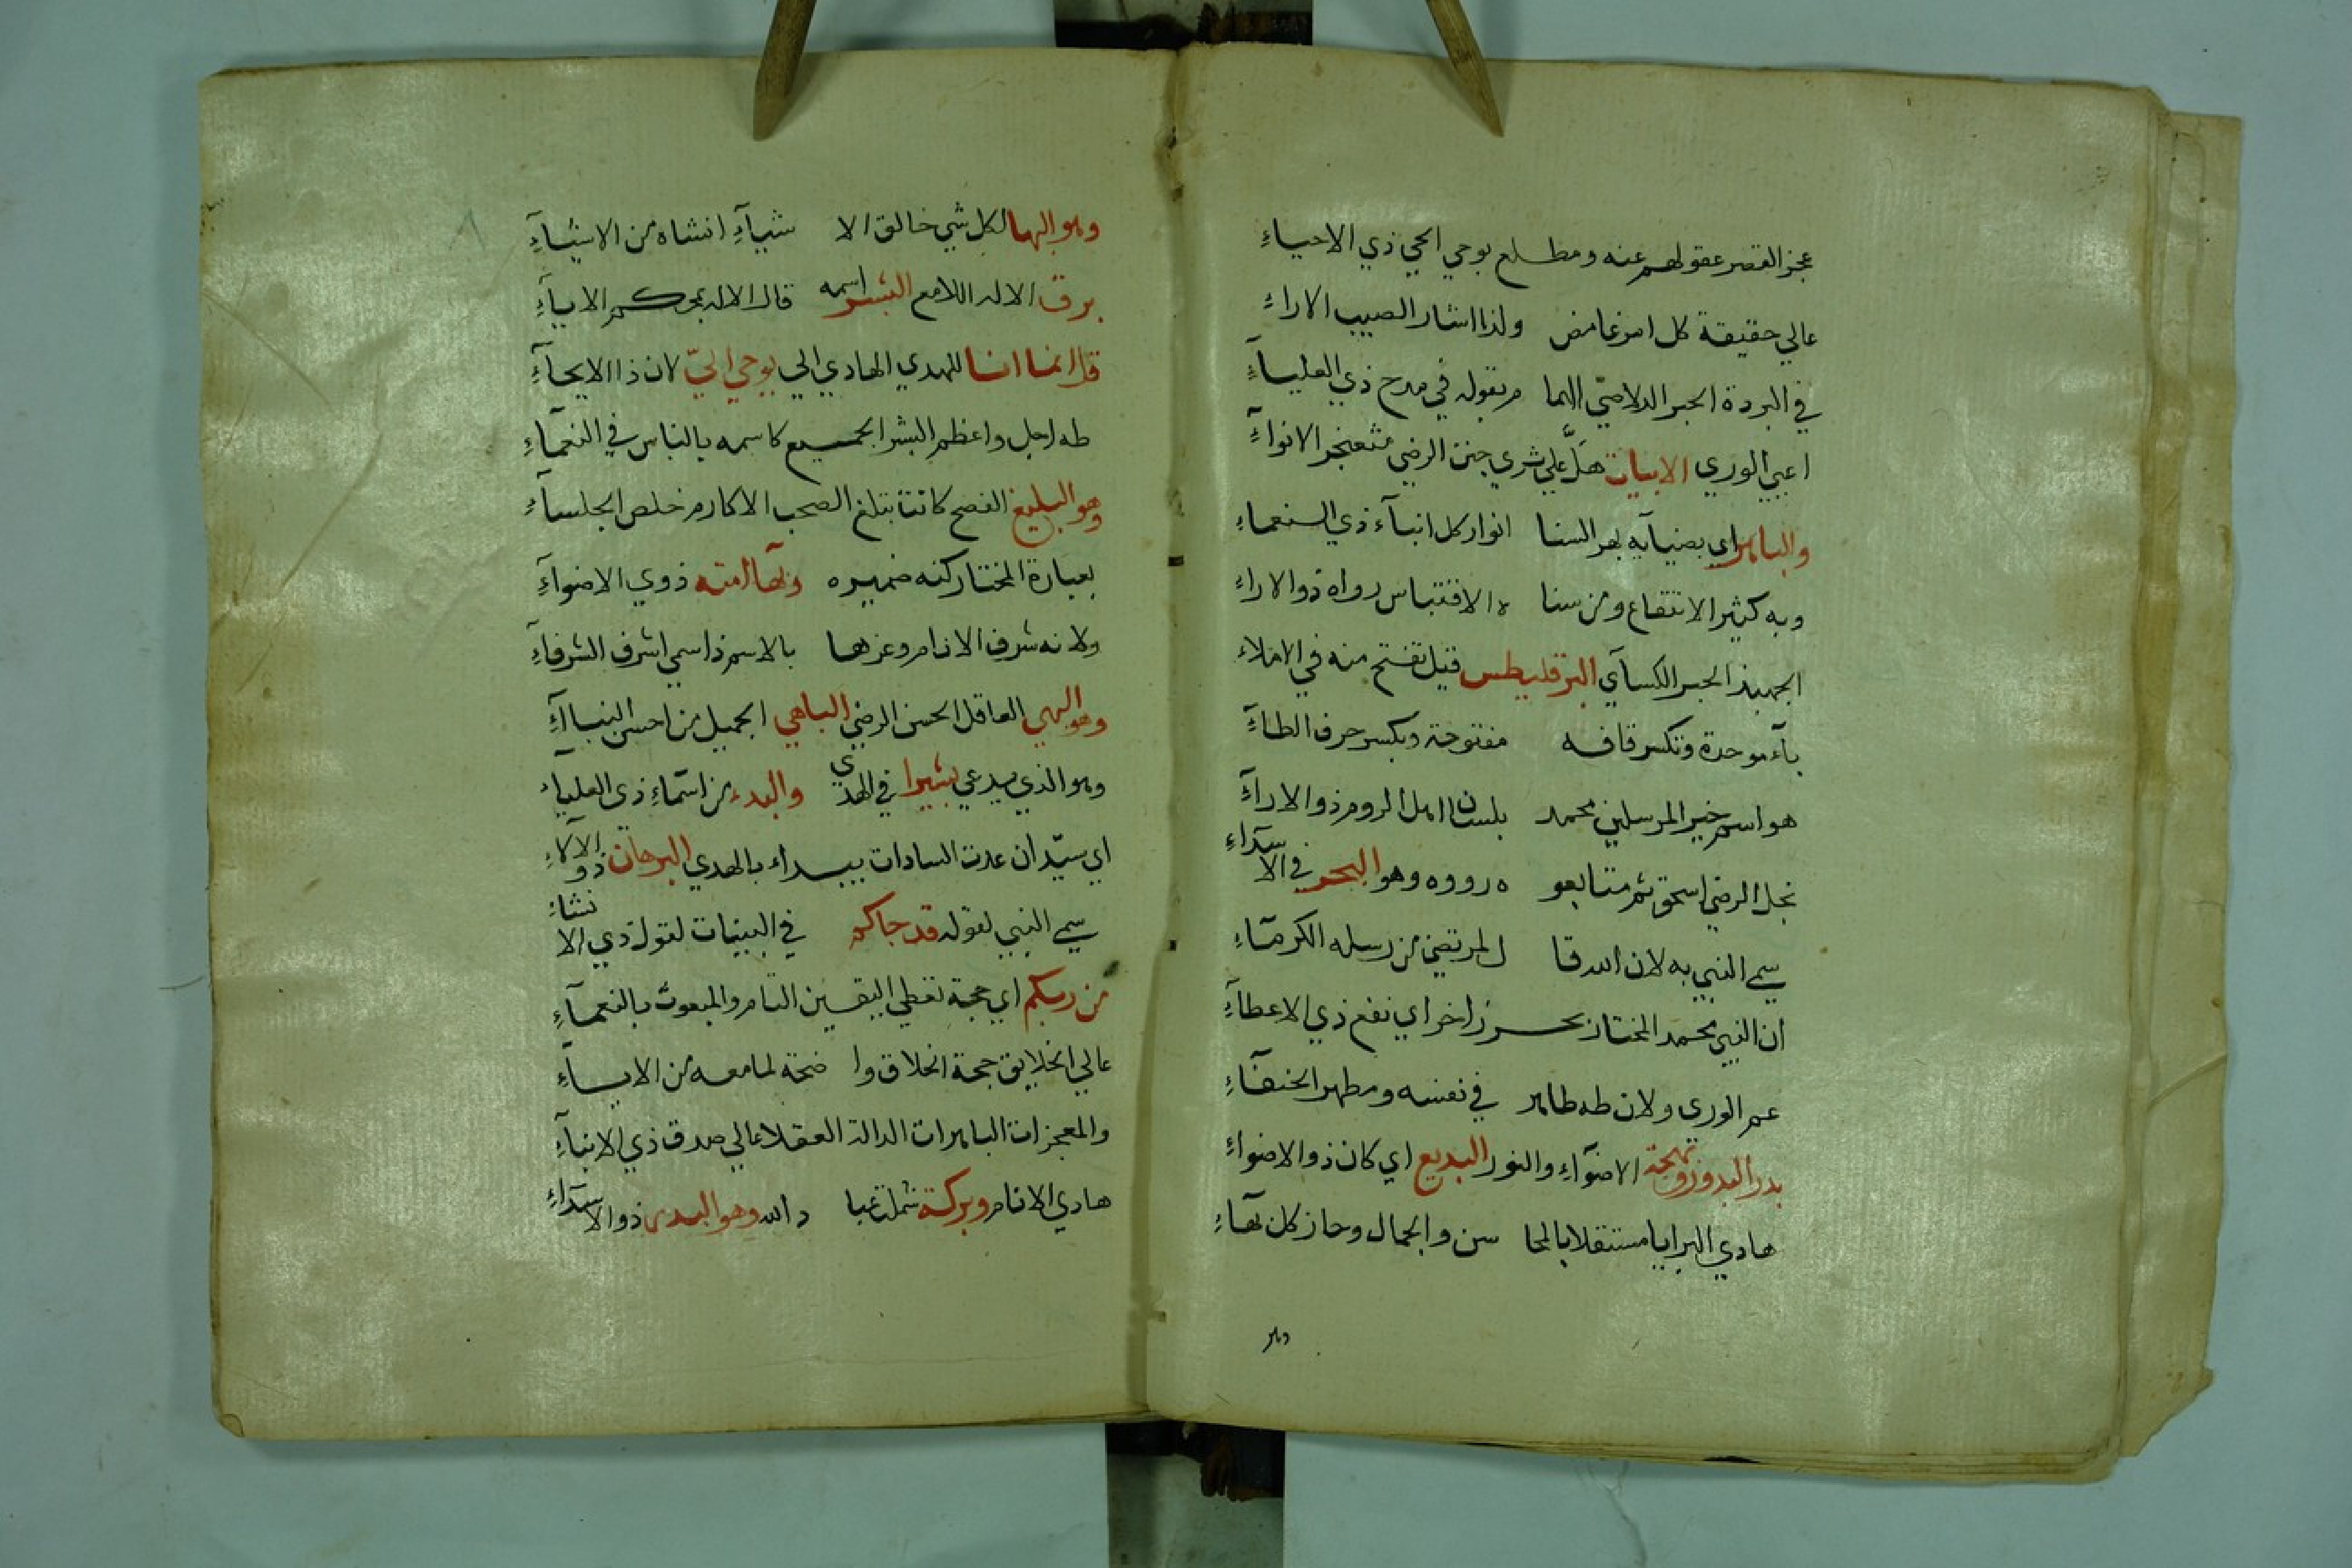 عجز القصر عقولهم عنه ومطلع بوحي الحي ذي الاحياء
عالي حقيقة كل امر غامض ولذا اشار الصيب الاراء
في البردة الحبر الدلاصي الهما م بقوله في مدح ذي العلياء
اعيي الوري الابيات هل علي ثري جنن الرضي مثعنجر الانواء
والباهر اي بضيايه بهر السنا انوار كل انبآء ذي النعماء
وبه كثير الانتفاع ومن سنا ه الاقتباس رواه ذو الاراء
الجهبذ الحبر الكسآي البرقليطس قيل تفتح منه في الاملاء
بآء موحدة وتكسر قافه مفتوحة وبكسر حرف الطآء
هو اسم خير المرسلين محمد بلسان اهل الروم ذو الارآء
نجل الرضي اسحق ثم متابعو ه رووه وهو البحر في الا سدآء
سمي النبي به لان الله قا ل لمرتضي من رسله الكرمآء
ان النبي محمد المختار بحر زاخر اي نفع ذي الاعطآء
عم الوري ولان طه طاهر في نفسه ومطهر الحنفآء
بدر البدور وبهجة الاضوآء والنور البديع اي كان ذو الاضوآء
هادي البرايا مستقلا بالمحا سن والجمال وحاز كل بهآء
وهو
وهو البها لكل شي خالق الا شيآء انشاه من الاشيآء
برق الاله اللامع البشر اسمه قال الاله بمحكم الانبآء
قل انما انا للمهدي الهادي الي يوحي الي لان ذا الايحآء
طه اجل واعظم البشر الجميع كاسمه بالناس في النعمآء
وهو البليغ الفصح كانت تبتلغ الصحب الاكارم خلص الجلسآء
بعبارة المختار كنه ضميره وبهآ امته ذوي الاضوآء
ولانه شرف الانام وعزها بالاسم ذا سمي اشرف الشرفآء
وهو البهي العاقل الحسن الرضي الباهي الجميل من احسن النبآء
وهو الذي يدعي بشيرا في الهدي والبدء من اسمآء ذي العليآء
اي سيد ان عدت السادات يبداء بالهدي البرهان ذو الالآء
سمي النبي لقوله قد جاكم في البينات لقول ذي الا نشآء
من ربكم اي حجة تعطي اليقين التام والمبعوث بالنعمآء
عالي الخلايق حجة الخلاق وا ضحة لما معه من الايسآء
والمعجزات الباهرات الدالة العقلا عالي صدق ذي الانبآء
هادي الانام وبركة شملت عبا د الله وهو البدر ذو الا سدآء